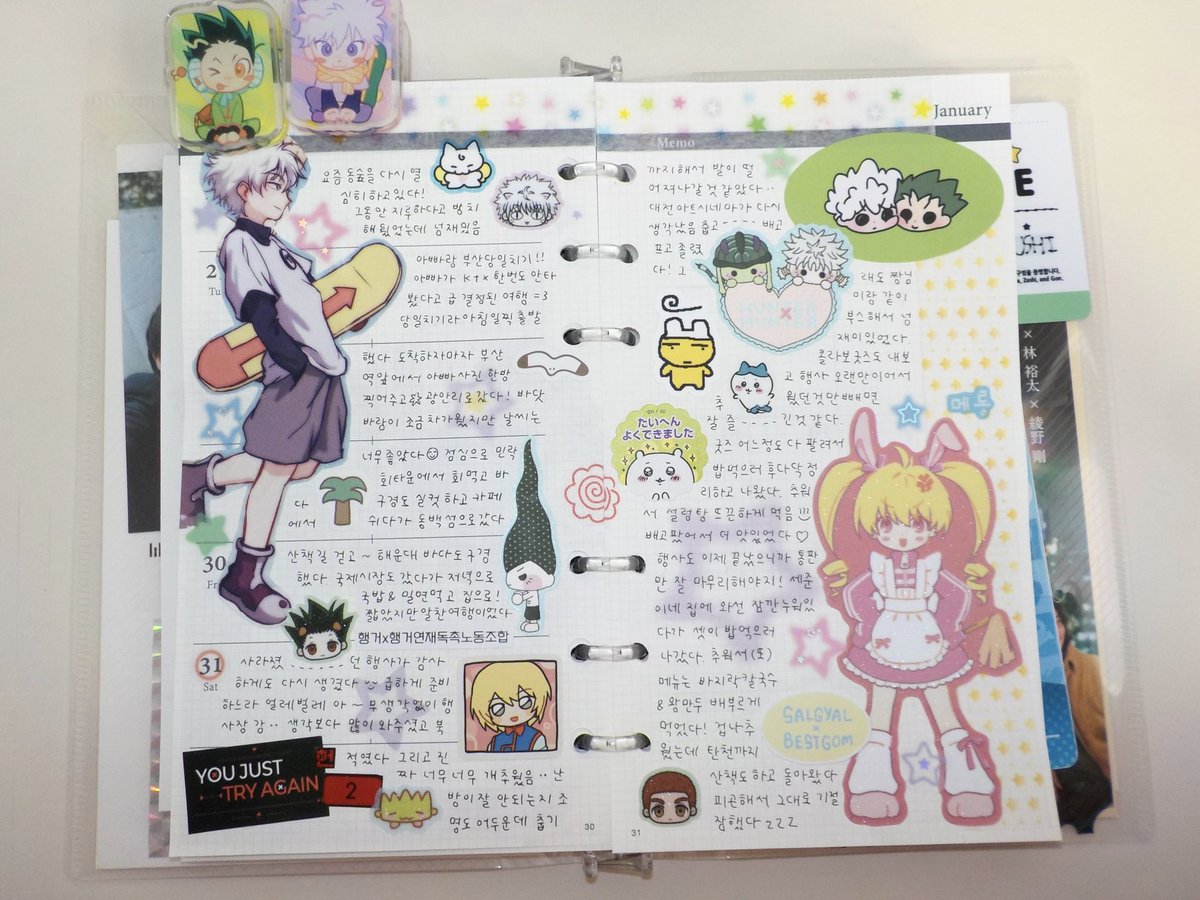 January
Memo
요즘 동숲을 다시 열
심히 하고있다!
그동안 지루하다고 방치
해뒀었는데 넘재밌음
2
Tu
아빠랑 부산당일치기!!
아빠가 ktx 한번도 안타
봤다고 급 결정된 여행 =3
당일치기라 아침일찍 출발
했다 도착하자마자 부산
역앞에서 아빠사진 한방
찍어주고 광안리로 갔다! 바닷
바람이 조금 차가웠지만 날씨는
너무좋았다 점심으로 민락
회타운에서 회먹고 바
다 구경도 실컷 하고 카페
에서 쉬다가 동백섬으로갔다
30
Fri
산책길 걷고 ~ 해운대 바다도 구경
했다 국제시장도 갔다가 저녁으로
국밥 & 밀면먹고 집으로!
짧았지만 알찬여행이었다
헌터x헌터연재독촉노동조합
31
Sat
사라졌 ------ 던 행사가 감사
하게도 다시 생겼다 급하게 준비
하느라 헐레벌레 아 ~ 무생각없이 행
사장 감.. 생각보다 많이 와주셨고 북
적였다 그리고 진
짜 너무너무 개추웠음.. 난
방이 잘 안되는지 조
명도 어두운데 춥기
YOU JUST
TRY AGAIN
2
30
까지해서 발이 떨
어져나갈것 같았다..
대전아트시네마가 다시
생각났음 춥고 ---- 배고
프고 졸렸
다! 그
래도 짱님
이랑 같이
부스해서 넘
재미있었다
콜라보굿즈도 내보
고 행사 오랜만이어서
추웠던것만 빼면
잘 즐 ---- 긴것 같다.
HUNTER
HUNTER
たいへん
よくできました
메롱
굿즈 어느정도 다 팔려서
밥먹으러 후다닥 정
리하고 나왔다. 추워
서 설렁탕 뜨끈하게 먹음 !!!
배고팠어서 더 맛있었다 ♡
행사도 이제 끝났으니까 통판
만 잘 마무리해야지! 세준
이네 집에 와선 잠깐누워있
다가 셋이 밥먹으러
나갔다. 추워서 (또)
메뉴는 바지락칼국수
& 왕만두 배부르게
먹었다! 겁나추
웠는데 탄천까지
산책도하고 돌아왔다
피곤해서 그대로 기절
잠했다 zzz
SALGYAL
×
BESTGOM
31
E
USHI
× 林 裕太 × 綾野 剛